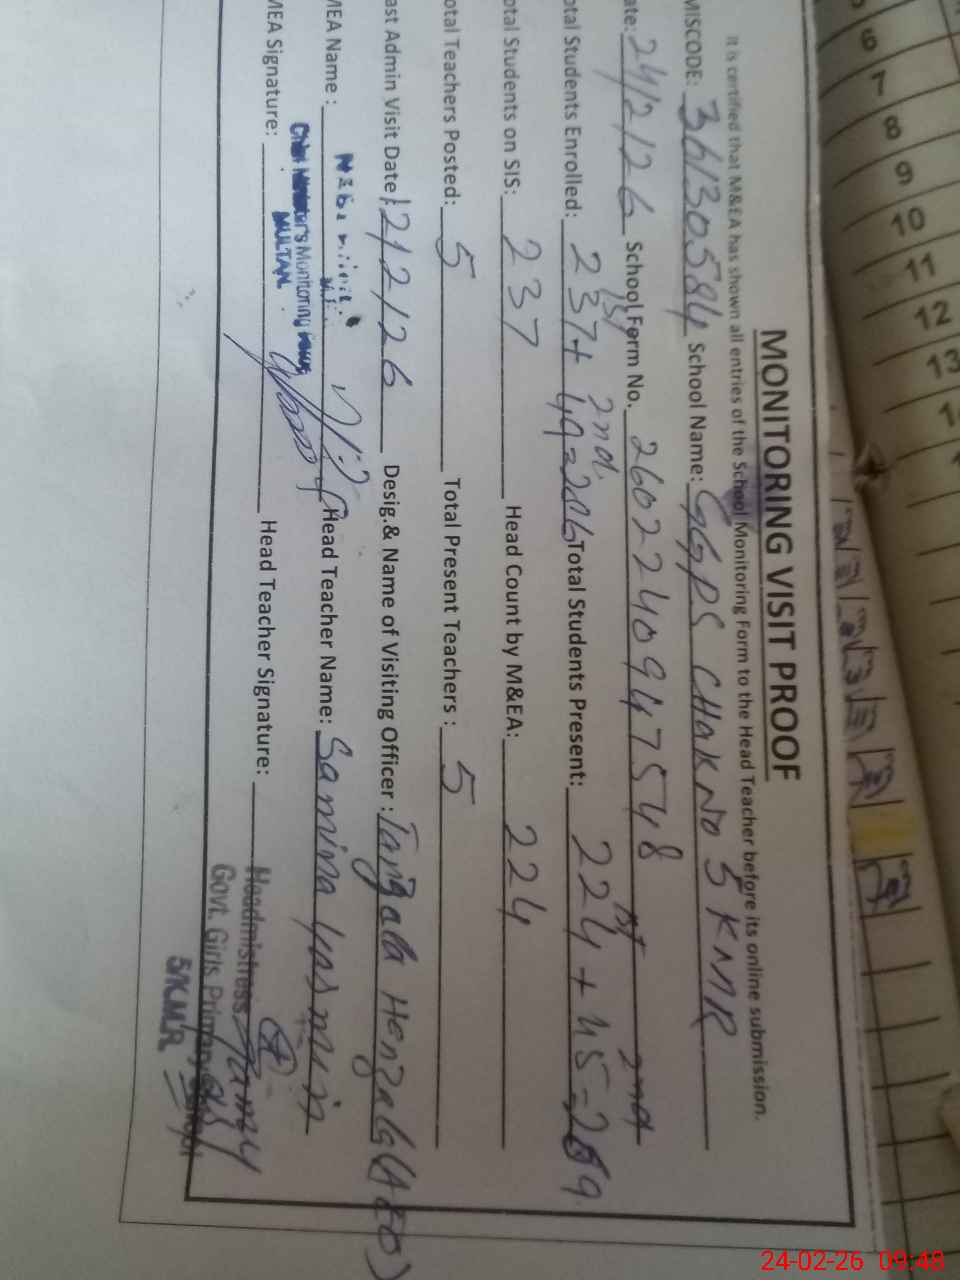 MONITORING VISIT PROOF
It is certified that M&EA has shown all entries of the School Monitoring Form to the Head Teacher before its online submission.
MISCODE: 36130584 School Name: GGPS CHAK NO 5 KMR
ate: 24/2/26 School Form No. 2602240947548
1st 2nd 1st 2nd
otal Students Enrolled: 237+49=286 Total Students Present: 224+45=269
otal Students on SIS: 237 Head Count by M&EA: 224
otal Teachers Posted: 5 Total Present Teachers : 5
ast Admin Visit Date: 12/2/26 Desig.& Name of Visiting Officer :
MEA Name : Head Teacher Name: Samina Yasmin
MEA Signature: Head Teacher Signature:
Chief Minister's Monitoring Force
MULTAN
Headmistress
Govt. Girls Primary School
5/K.M.R
5
6
7
8
9
10
11
12
13
24-02-26 09:48